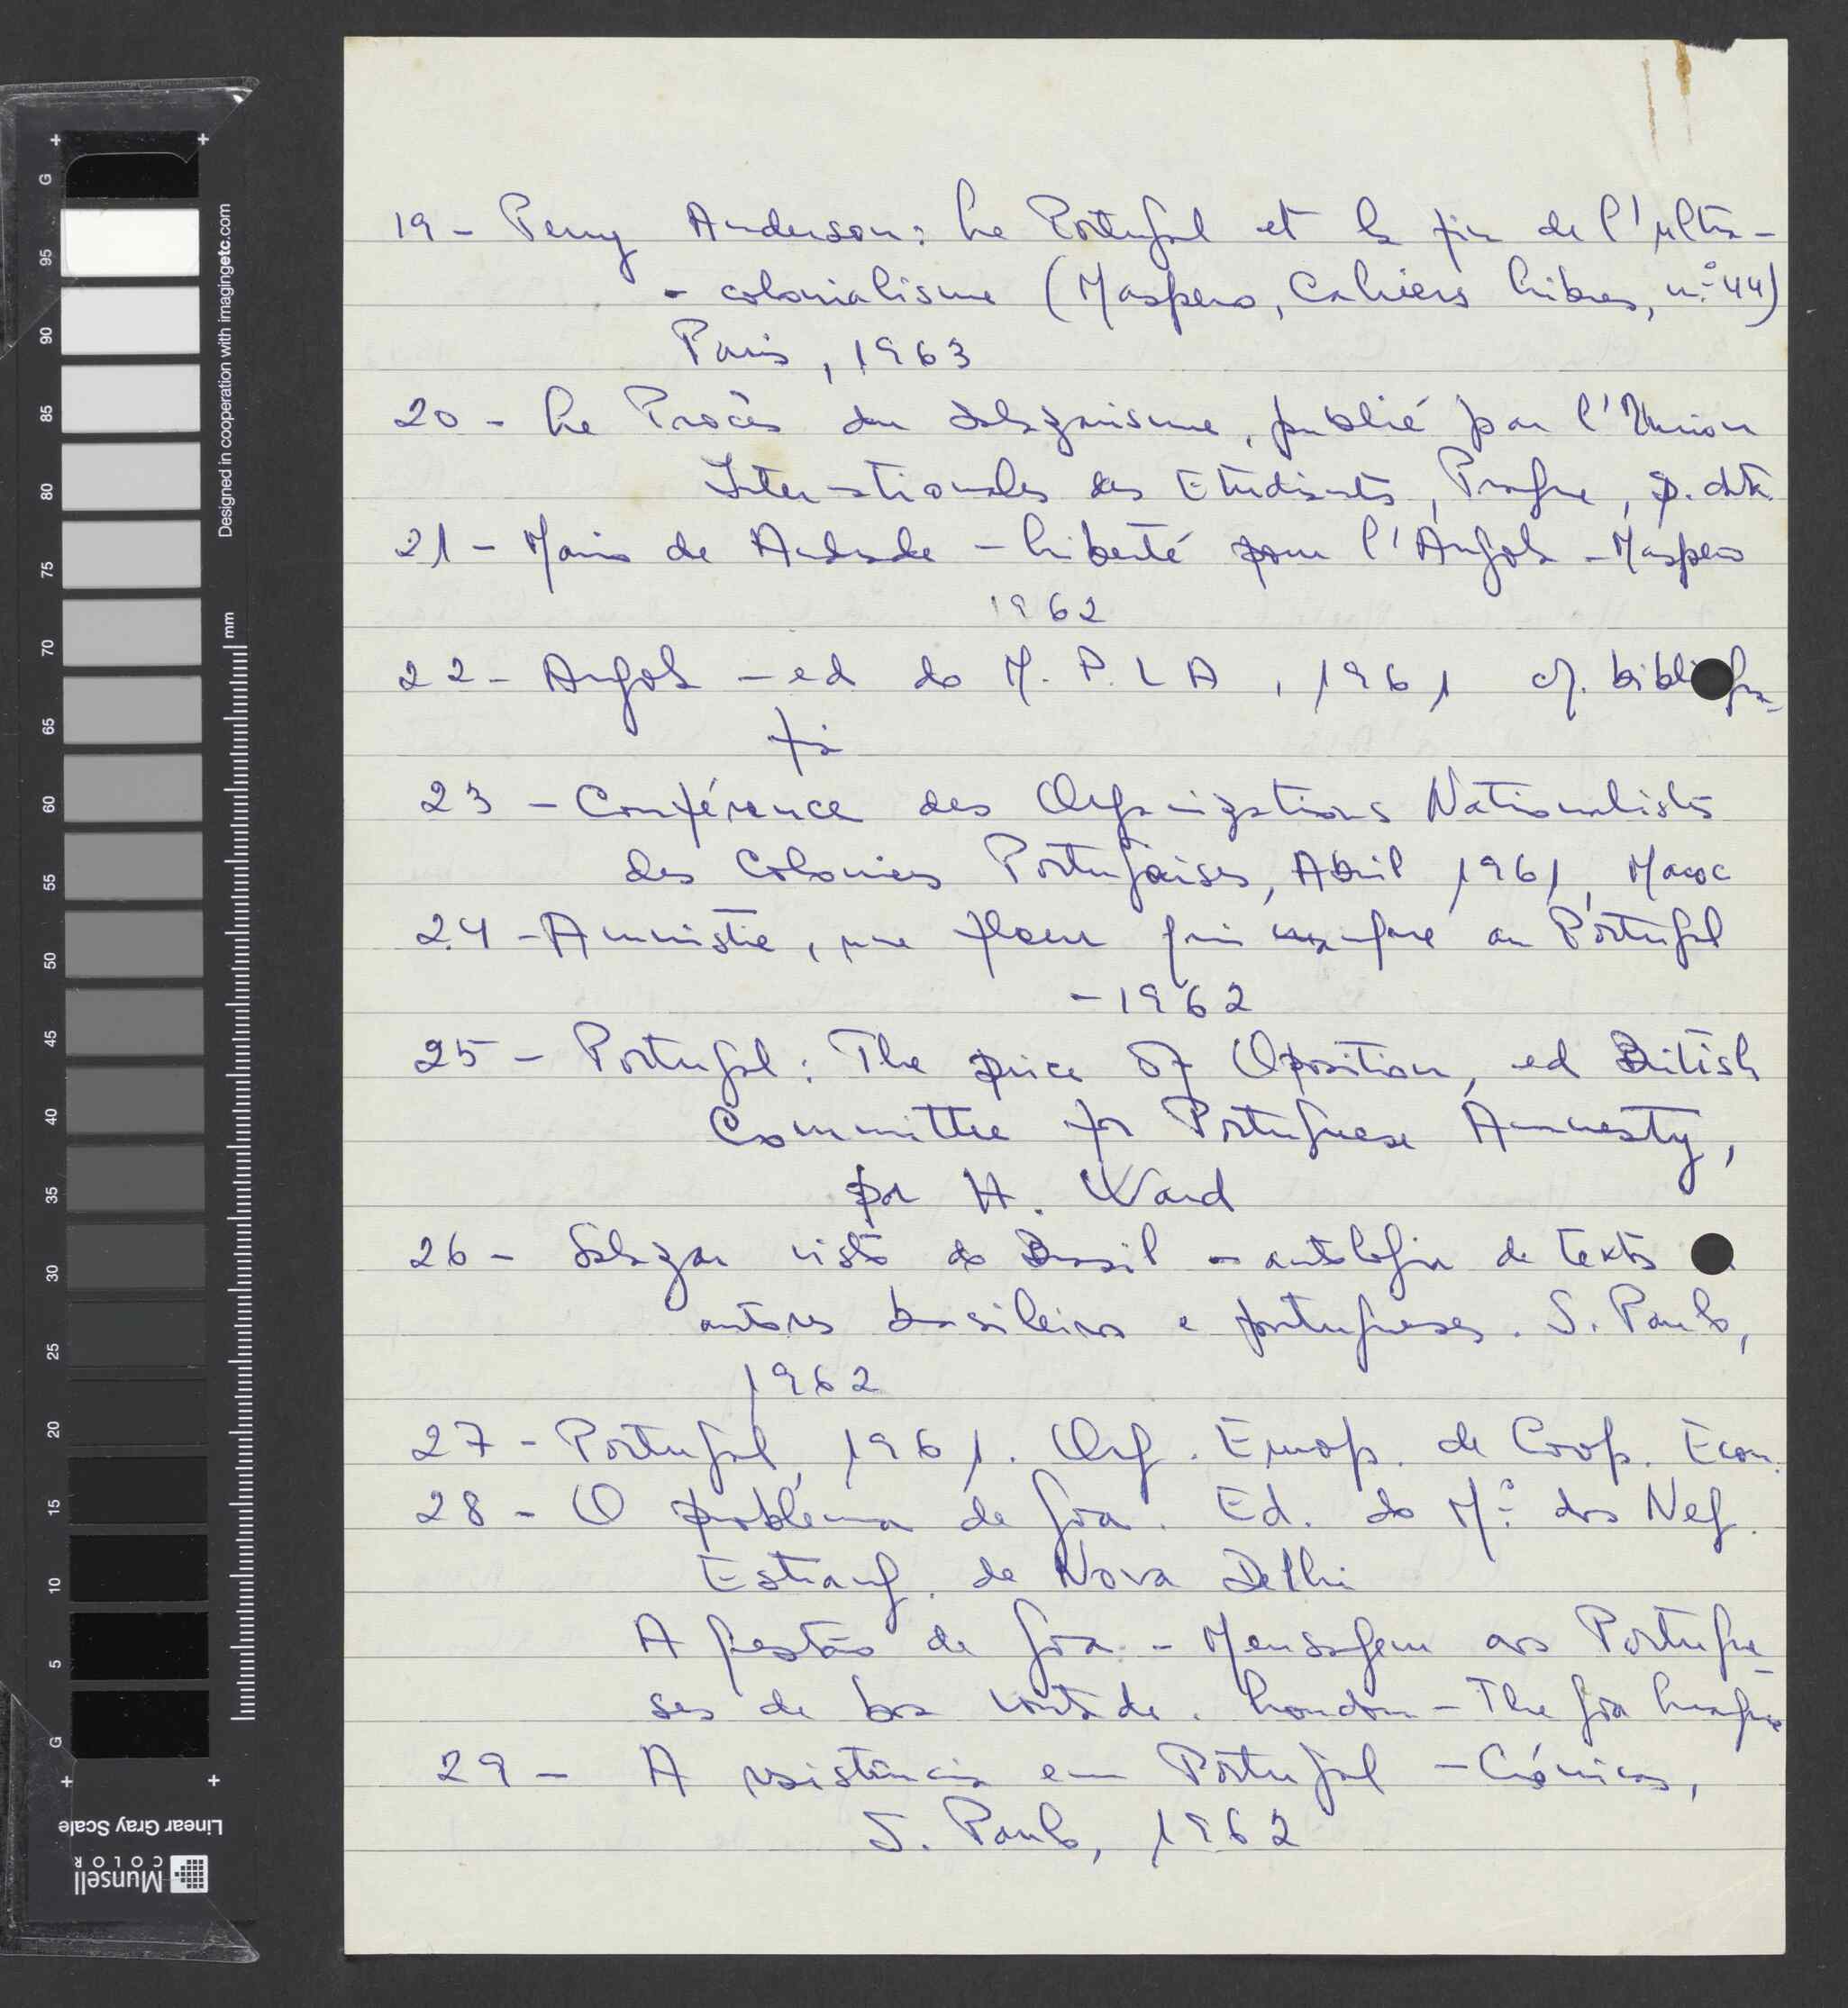 19 - Perry Anderson: Le Portugal et la fin de l'ultra-
- colonialisme (Maspero, Cahiers Libres, n.º 44)
Paris, 1963
20 - Le Procès du Salazarisme, publié par l'Union
Internationales des Etudiants, Prague, s. data
21 - Mario de Andrade - Liberté pour l'Angola - Maspero
1962
22 - Angola - ed do M. P. L A, 1961 cf. bibliogra-
fia
23 - Conférence des Organizations Nationalistes
des Colonies Portugaises, Abril 1961, Maroc
24 - Amnistie, une fleur qui manque au Portugal
- 1962
25 - Portugal: The price of Oposition, ed British
Committee for Portuguese Amnesty,
por H. Ward
26 - Salazar visto do Brasil - antologia de textos
autores brasileiros e portugueses. S. Paulo,
1962
27 - Portugal, 1961. Org. Europ. de Coop. Econ.
28 - O problema de Goa. Ed. do M.º dos Neg.
Estrang. de Nova Delhi
A questão de Goa - Mensagem aos Portugue-
ses de boa vontade. London - The Goa League
29 - A resistência em Portugal - Crónicas,
S. Paulo, 1962
G 95 90 85 80 75 70 65 60 55 50 45 40 35 30 25 20 15 10 5 G
Designed in cooperation with imagingetc.com
mm
Linear Gray Scale
Munsell
COLOR